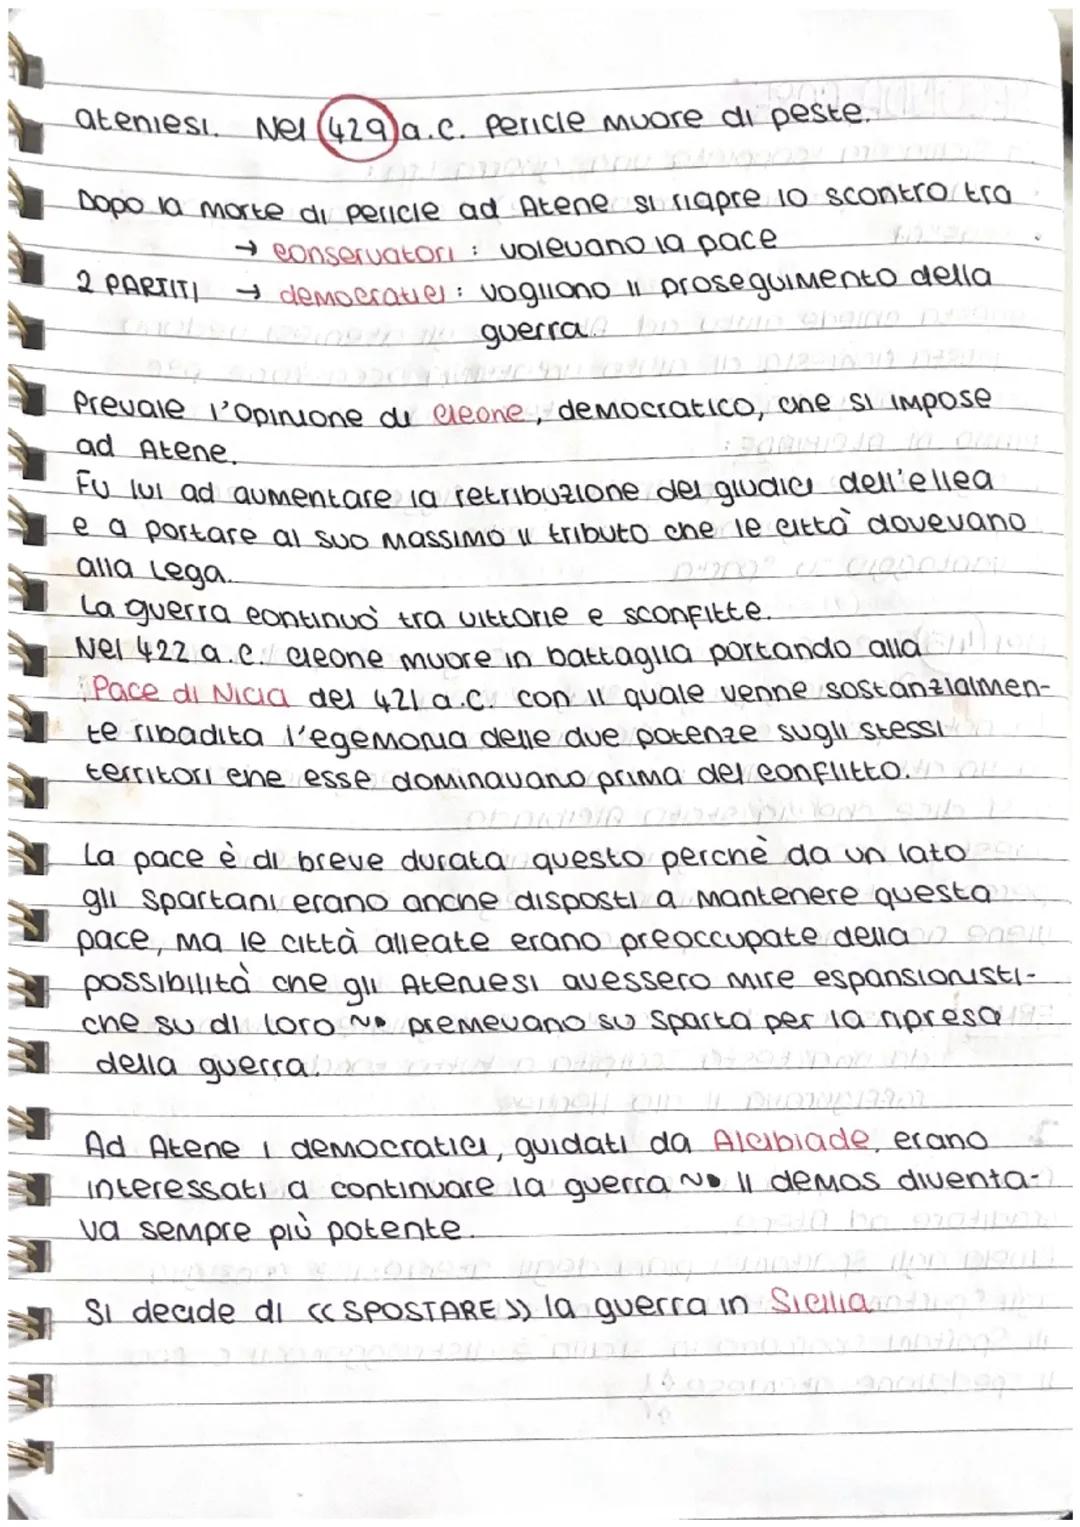 ateniesi. Nel 429 a.C. Pericle muore di peste.
Dopo la morte di Pericle ad Atene si riapre lo scontro tra
→ conservatori : volevano la pace
2 PARTITI → democratici : vogliono il proseguimento della
guerra.
Prevale l'opinione di Cleone, democratico, che si impose
ad Atene.
Fu lui ad aumentare la retribuzione dei giudici dell'ellea
e a portare al suo massimo il tributo che le città dovevano
alla Lega.
La guerra continuò tra vittorie e sconfitte.
Nel 422 a.C. Cleone muore in battaglia portando alla
Pace di Nicia del 421 a.C. con il quale venne sostanzialmen-
te ribadita l'egemonia delle due potenze sugli stessi
territori che esse dominavano prima del conflitto.
La pace è di breve durata questo perchè da un lato
gli Spartani erano anche disposti a mantenere questa
pace, ma le città alleate erano preoccupate della
possibilità che gli Ateniesi avessero mire espansionisti-
che su di loro ~> premevano su Sparta per la ripresa
della guerra.
Ad Atene i democratici, guidati da Alcibiade, erano
interessati a continuare la guerra ~> il demos diventa-
va sempre più potente.
Si decide di << SPOSTARE >> la guerra in Sicilia